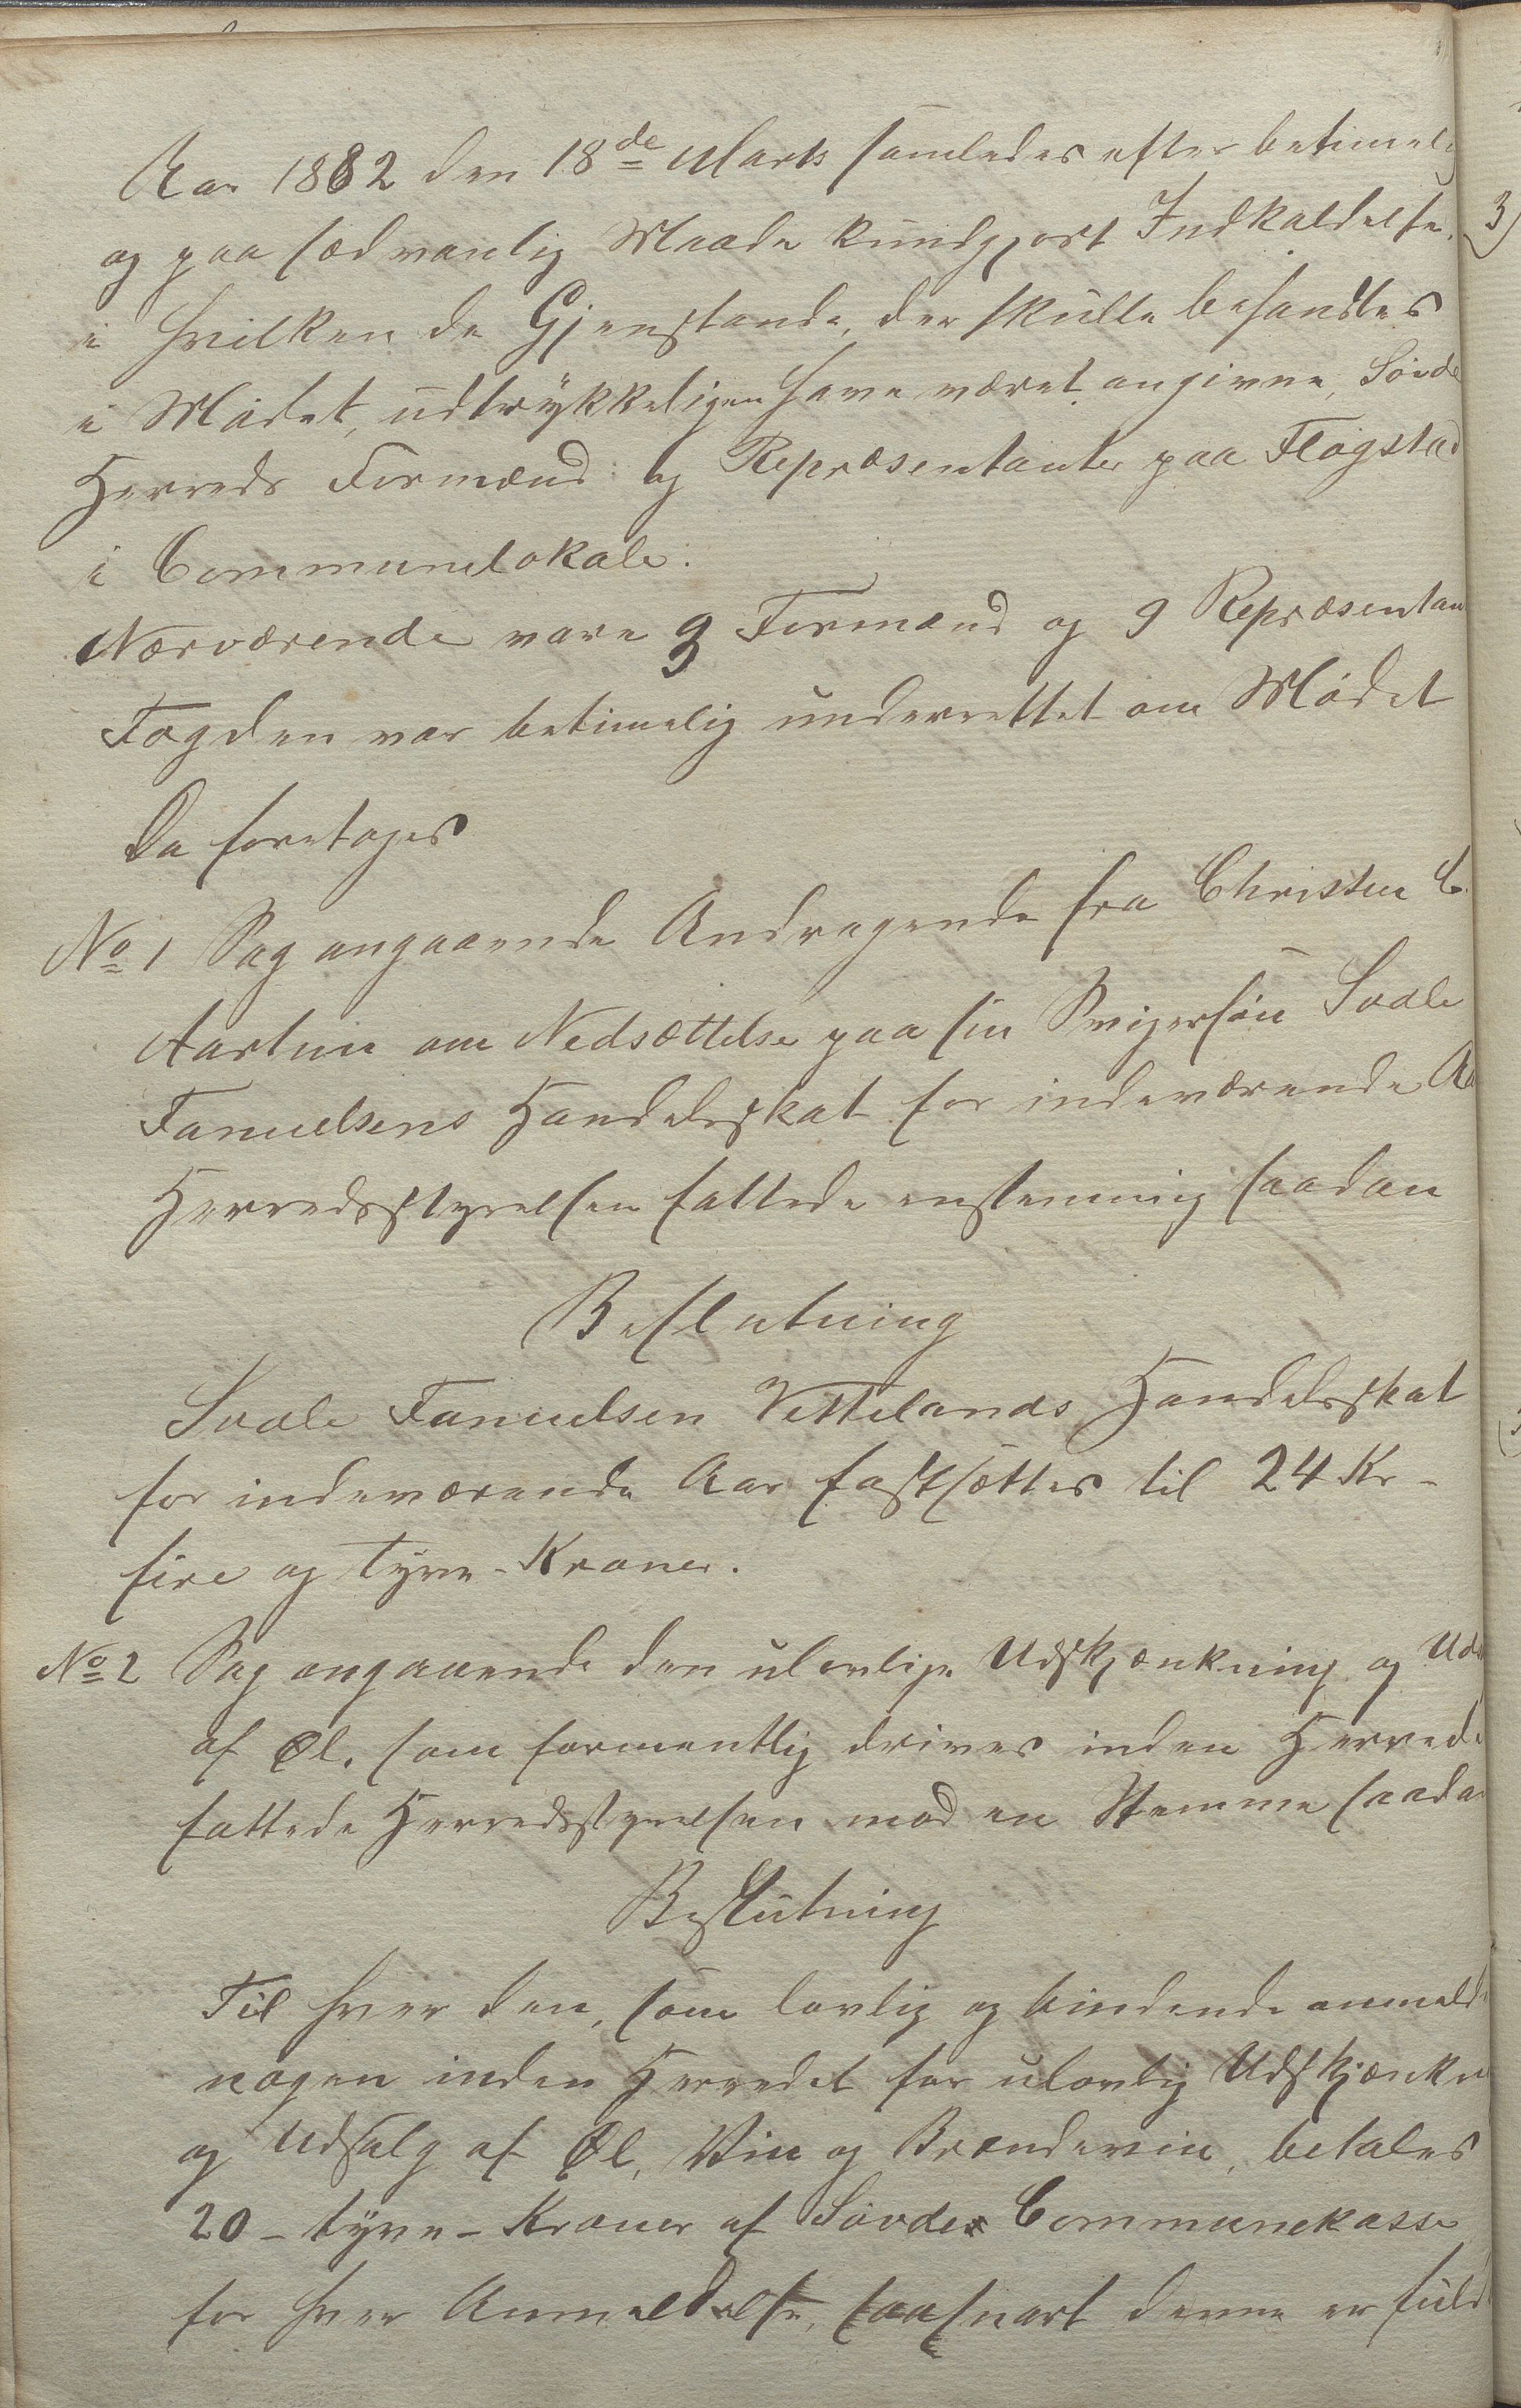 Aar 1882 den 18de Marts samledes efter betimel
og paa sædvanlig Maade kundgjort Indkaldelse,
i hvilken de Gjenstande, der skulle behandles
i Mødet, udtrykkeligen have været angivne, Søvde
Herreds Formænd og Repræsentanter paa Fløgstad
i Communelokale.
Nærværende vare 3 Formænd og 9 Repræsentan
Fogden var betimelig underrettet om Mødet
Da foretoges
No 1 Sag angaaende Andragende fra Christen C.
Aartun om Nedsættelse paa sin Svigersøn Soale
Fanuelsens Handelsskat for indeværende Aa
Herredsstyrelsen fattede enstemmig saadan
Beslutning
Soale Fanuelsen Vettelands Handelsskat
for indeværende Aar fastsættes til 24 Kr -
fire og tyve - Kroner.
No 2 Sag angaaende den ulovlige Udskjænkning og Uds
af Øl, som formentlig drives inden Herrede
fattede Herredsstyrelsen mod en Stemme saada
Beslutning
Til hver den, som lovlig og bindende anmelde
nogen inden Herredet for ulovlig Udskjænkn
og Udsalg af Øl, Vin og Brændevin, betales
20 - tyve - Kroner af Søvde Communekasse
for hver Anmeldelse, saasnart denne er fuld
3)